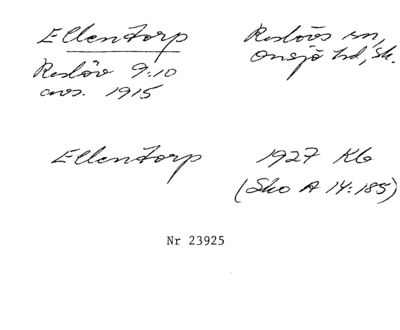 Ellentorp
Reslövs sn,
Onsjö hd, Sk.
Reslöv 9:10
avs. 1915
Ellentorp
1927 Kb
(Sko A 14:185)
Nr 23925